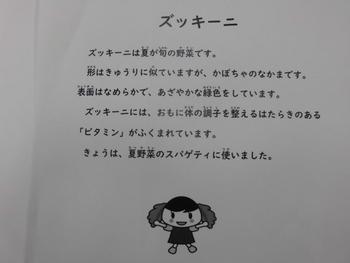 ズッキーニ
ズッキーニは夏が旬の野菜です。
形はきゅうりに似ていますが、かぼちゃのなかまです。
表面はなめらかで、あざやかな緑色をしています。
ズッキーニには、おもに体の調子を整えるはたらきのある
「ビタミン」がふくまれています。
きょうは、夏野菜のスパゲティに使いました。